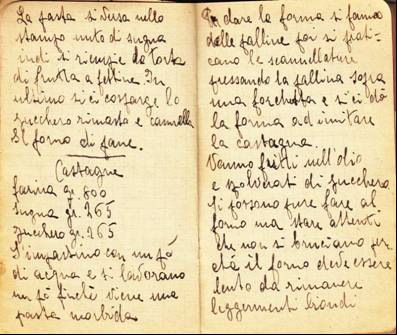 La pasta si versa nello
stampo unto di sugna
indi si riempie da torta
di frutta a fettine. In
ultimo si ci cosparge lo
zucchero rimasto e cannella
Al forno di pane.
Castagne
farina gr. 800
sugna gr. 265
zucchero gr. 265
S'impastino con un pó
di acqua e si lavorano
un pó finchè viene una
pasta morbida
Per dare la forma si fanno
delle palline poi si prati-
cano le scannellature
pressando la pallina sopra
una forchetta e si ci dà
la forma ad imitare
la castagna.
Vanno fritti nell'olio
e spolverati di zucchero
Si possono pure fare al
forno ma stare attenti
che non si bruciano per
chè il forno deve essere
lento da rimanere
leggermenti biondi